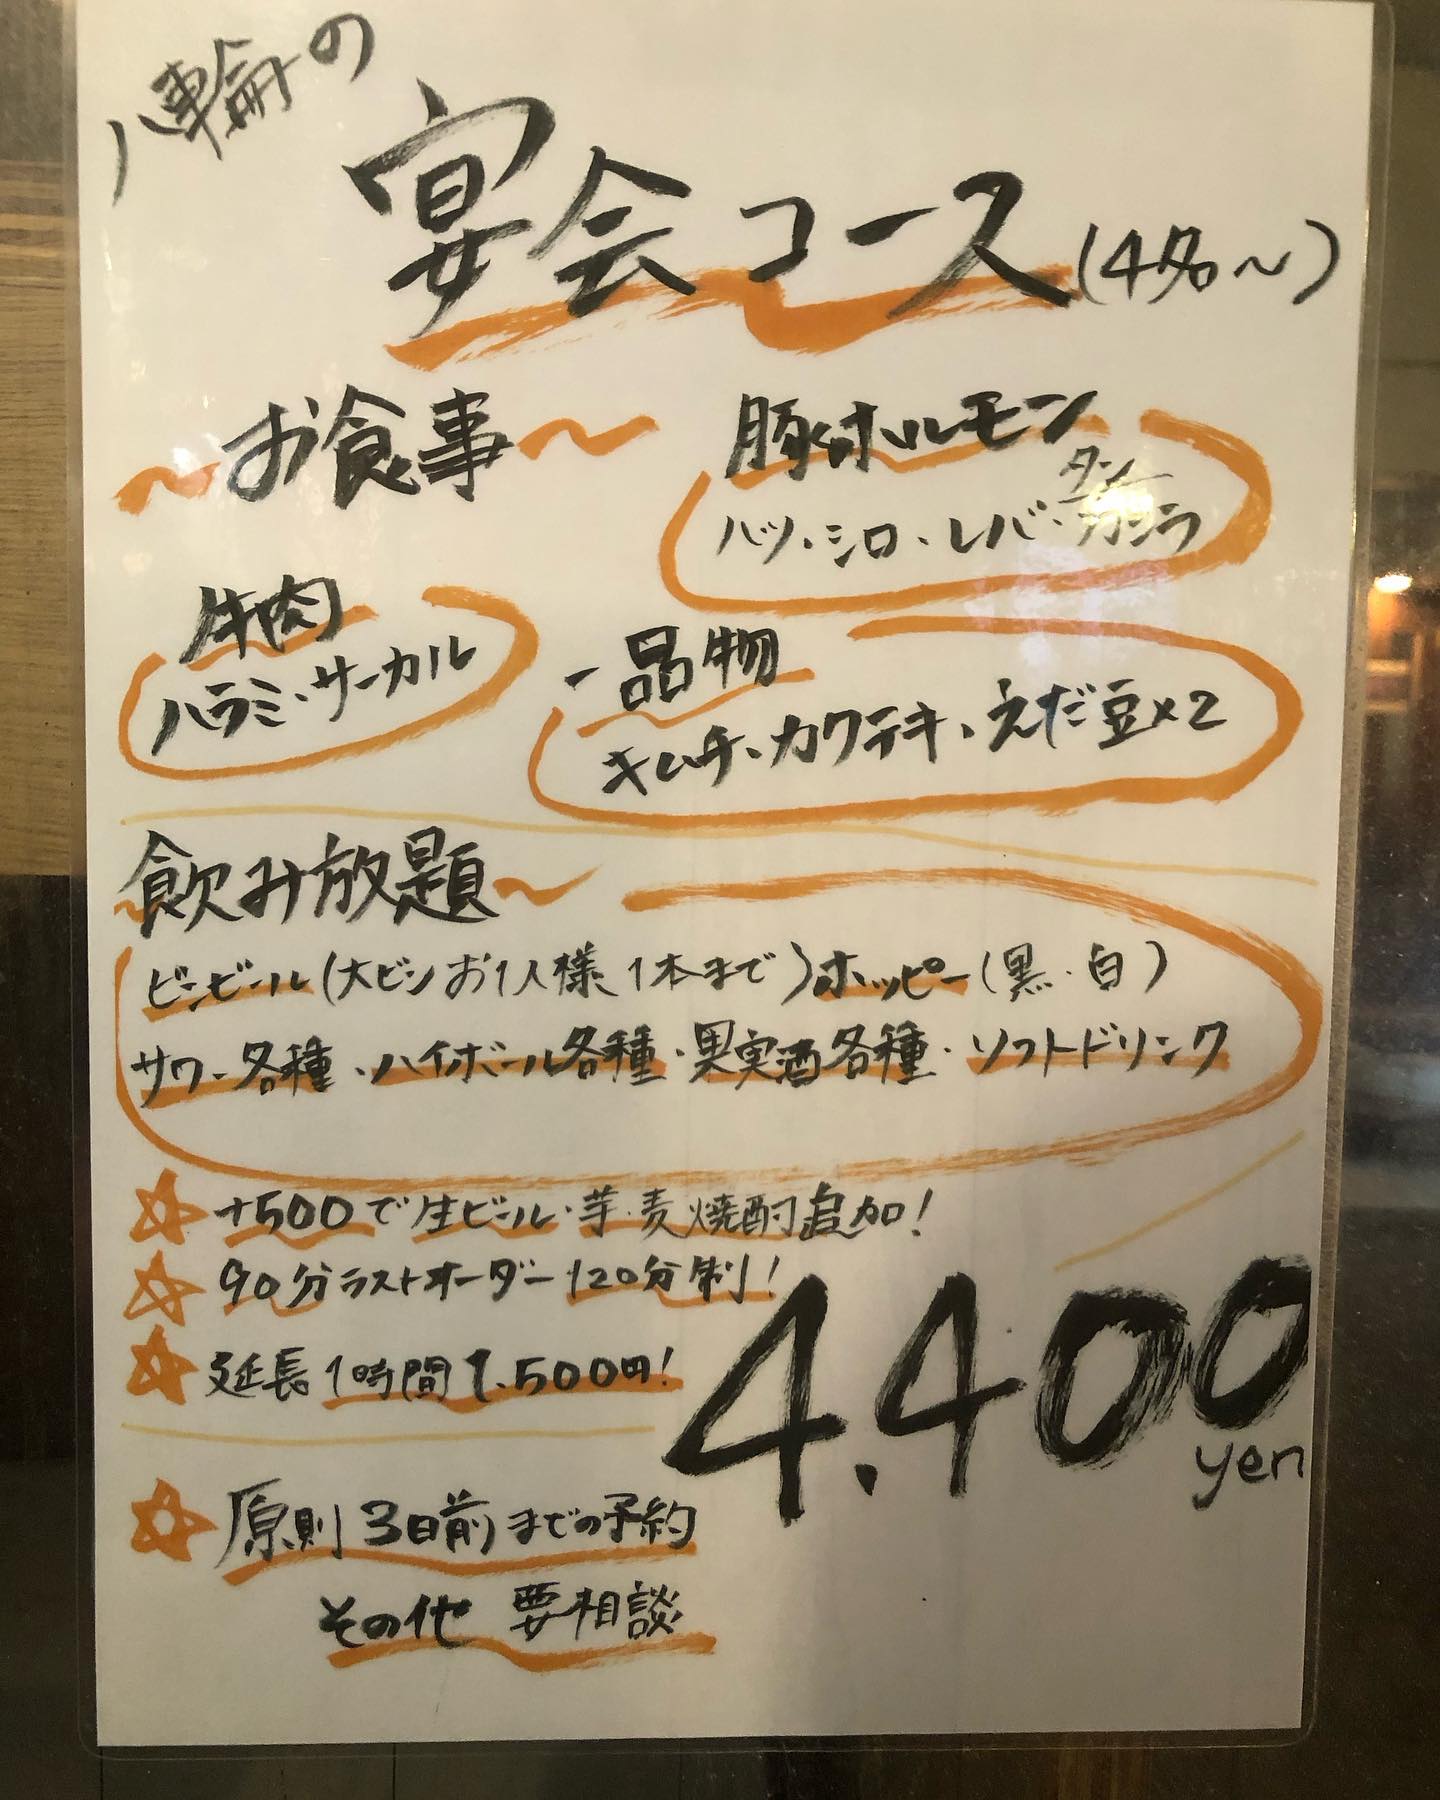 八輪の
宴会コース(4名〜)
〜お食事〜
豚ホルモン
タン
ハツ・シロ・レバ・カシラ
牛肉
ハラミ・サーカル
一品物
キムチ、カクテキ、えだ豆×2
〜飲み放題〜
ビンビール(大ビンお1人様1本まで)ホッピー(黒・白)
サワー各種・ハイボール各種・果実酒各種・ソフトドリンク
☆+500で生ビール・芋・麦焼酎追加!
☆90分ラストオーダー120分制!
☆延長1時間1.500円!
4.400
yen
☆原則3日前までの予約
その他 要相談